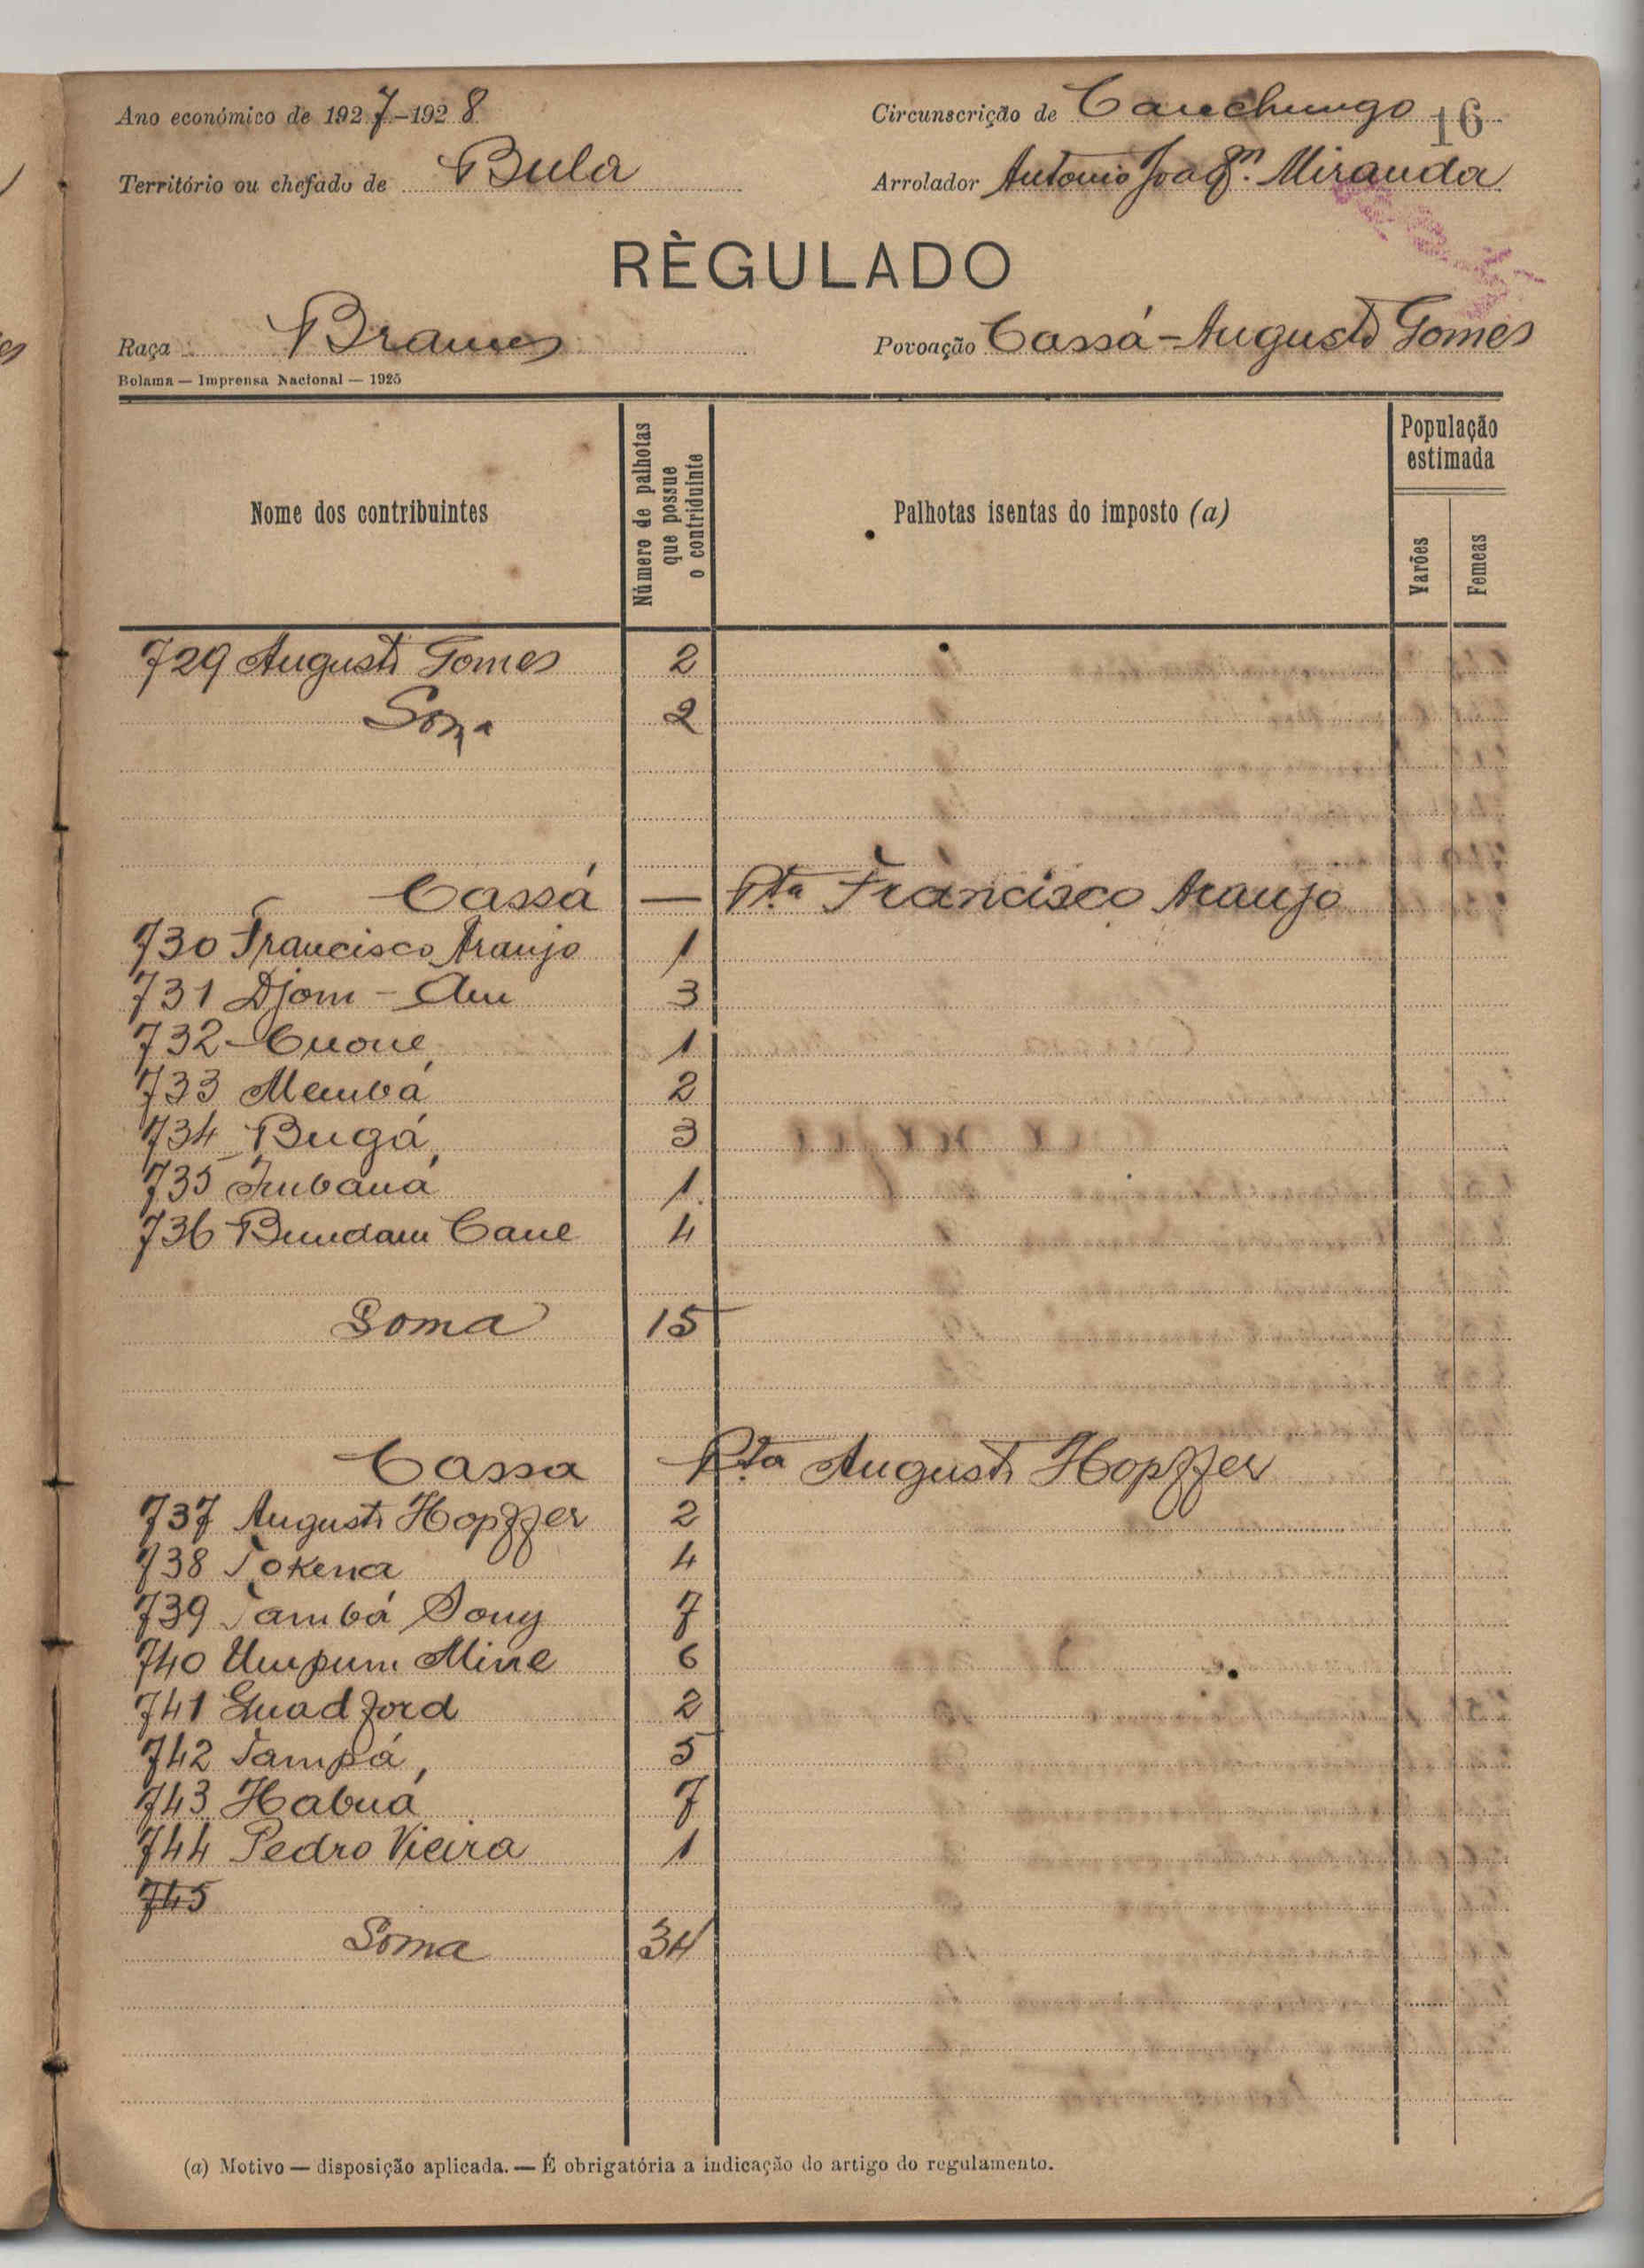 Ano económico de 1927-1928
Circunscrição de Canchungo 16
Território ou chefado de Bula
Arrolador Antonio Joaqm. Miranda
RÈGULADO
Raça Brames
Povoação Cassá-Augusto Gomes
Bolama — Imprensa Nacional — 1925
Nome dos contribuintes
Número de palhotas que possue o contriduinte
Palhotas isentas do imposto (a)
População estimada
Varões
Femeas
729 Augusto Gomes 2
Soma 2
Cassá — Pta Francisco Araujo
730 Francisco Araujo 1
731 Djom - Au 3
732 - Cuone 1
733 Membá 2
734 Bugá 3
735 1
736 Bundam Cane 4
Soma 15
Cassa Pta Augusto Hopffer
737 Augusto Hopffer 2
738 Tokena 4
739 Tambá Sony 7
740 Umpum Mine 6
741 Guadford 2
742 Tampá 5
743 Habuá 7
744 Pedro Vieira 1
745
Soma 34
(a) Motivo — disposição aplicada. — É obrigatória a indicação do artigo do regulamento.